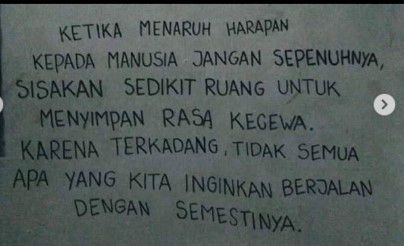 KETIKA MENARUH HARAPAN
KEPADA MANUSIA JANGAN SEPENUHNYA,
SISAKAN SEDIKIT RUANG UNTUK
MENYIMPAN RASA KECEWA.
KARENA TERKADANG, TIDAK SEMUA
APA YANG KITA INGINKAN BERJALAN
DENGAN SEMESTINYA.